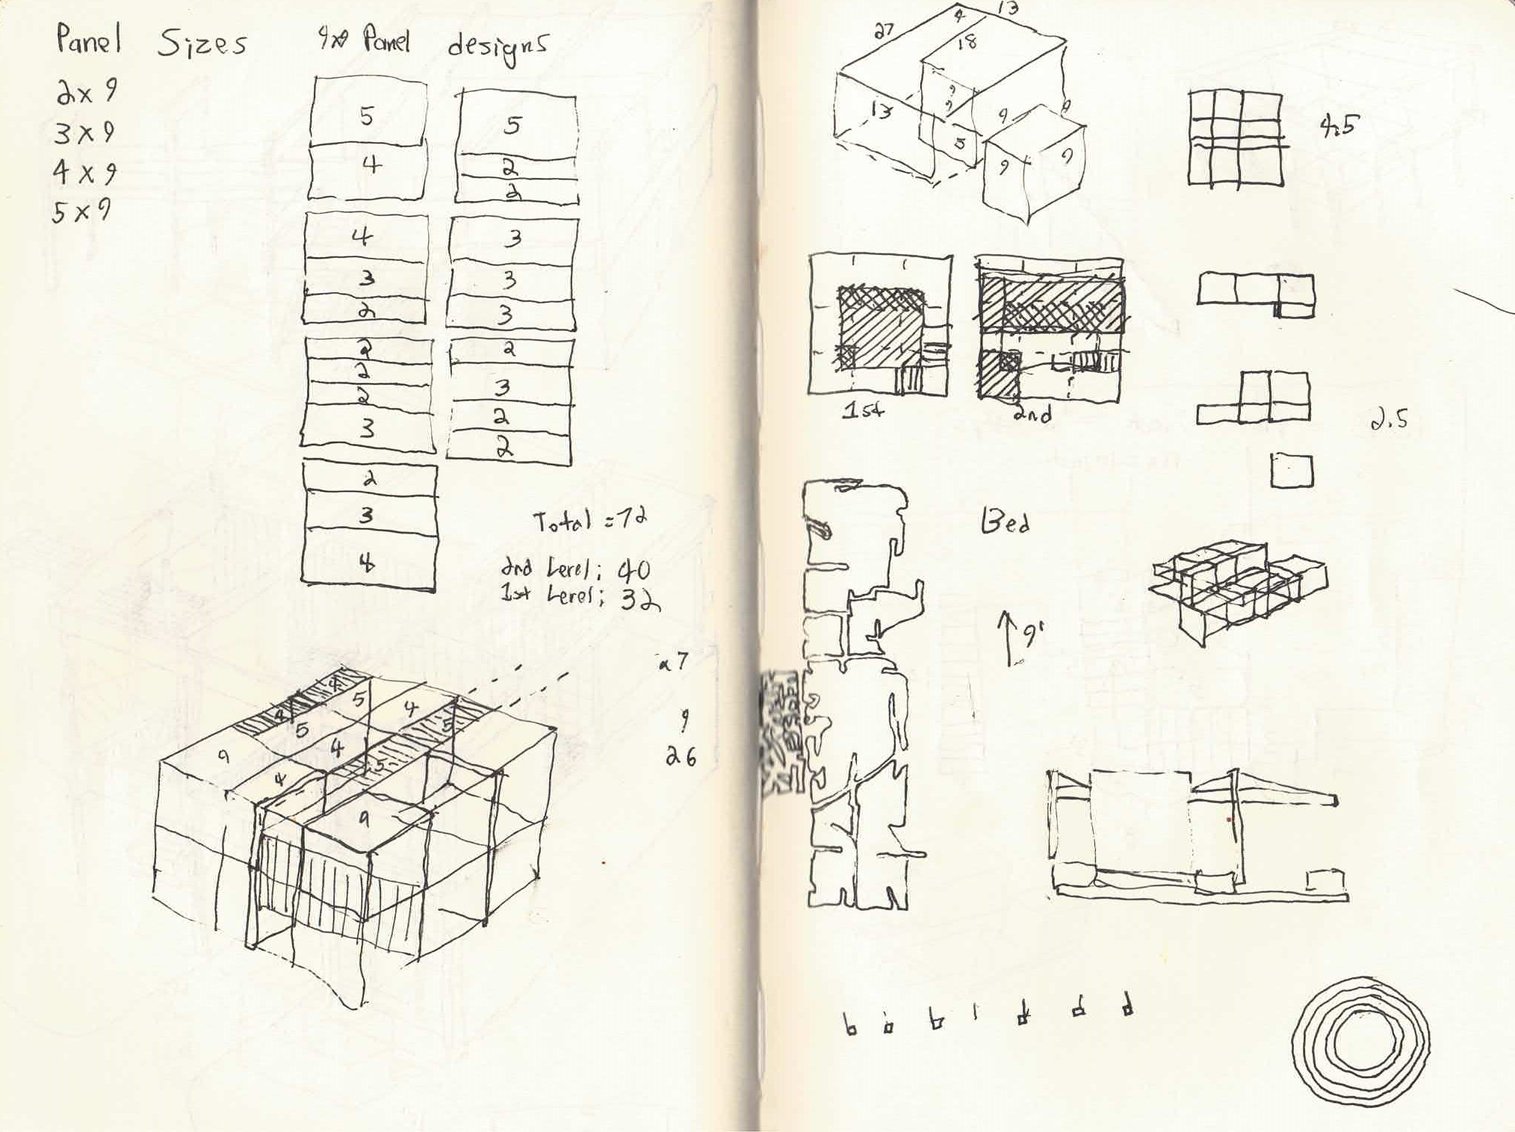 Panel Sizes
2x9
3x9
4x9
5x9
9x9 Panel designs
5
4
5
2
2
4
3
2
3
3
3
2
2
2
3
2
3
2
2
2
3
4
Total = 72
2nd Level; 40
1st Level; 32
27
9
26
4
4
5
5
4
5
9
4
4
5
9
27
4
13
18
9
9
13
5
9
9
9
9
4.5
1st
2nd
2.5
Bed
9'